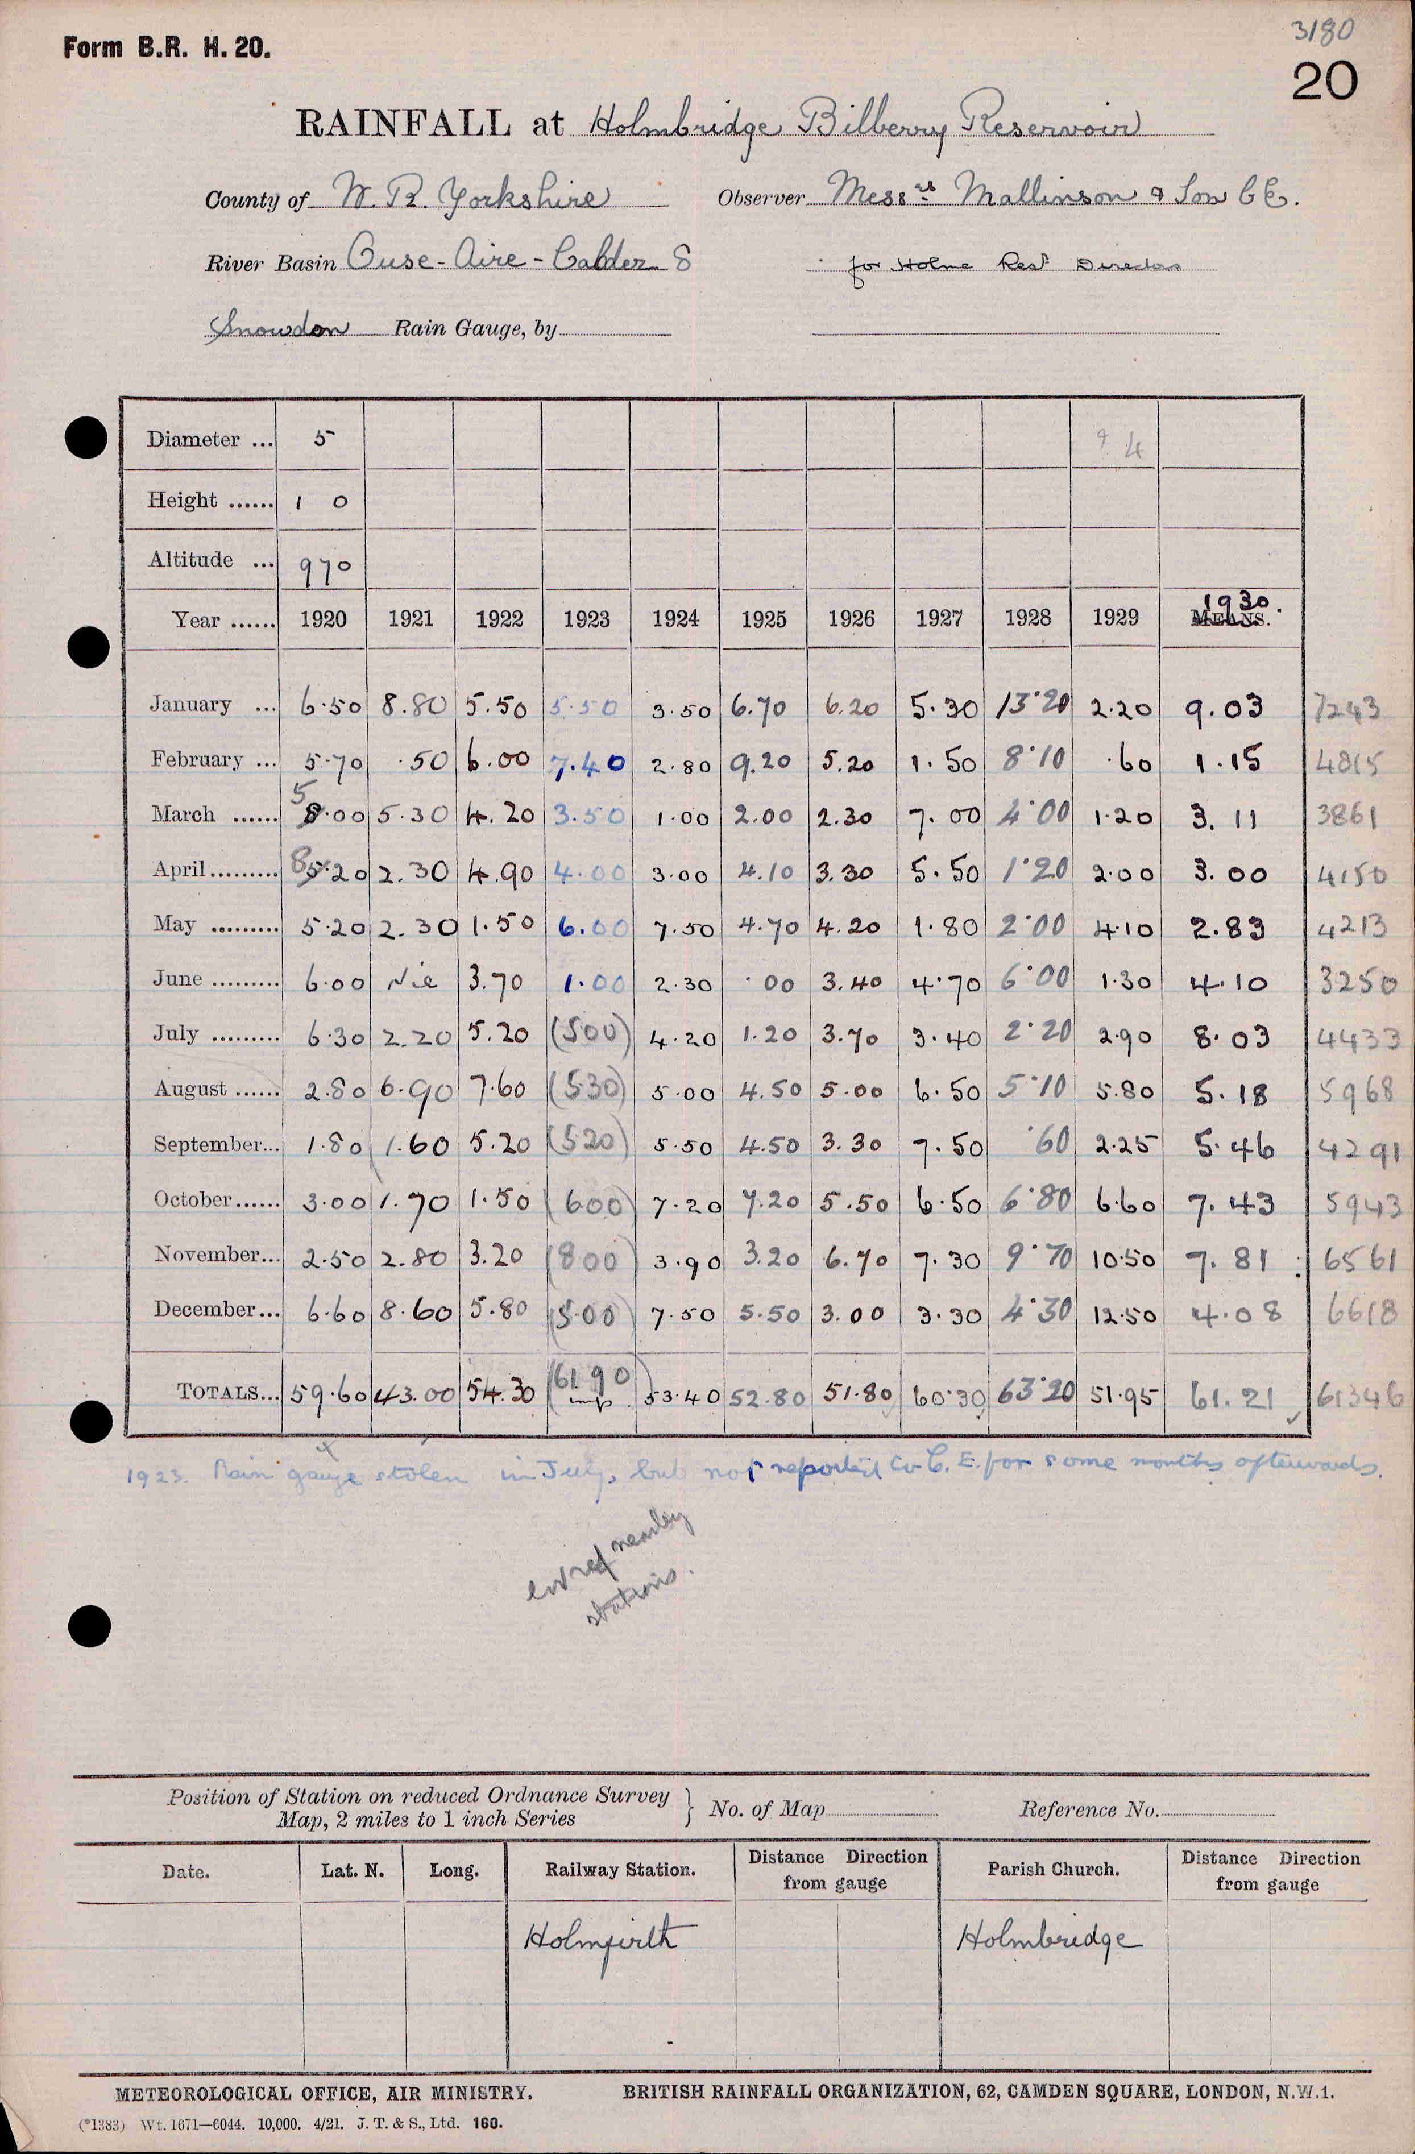 3180
Form B.R. H. 20.
20
RAINFALL at Holmbridge Bilberry Reservoir
County of W. R. Yorkshire Observer Messrs Mallinson & Son C.E.
River Basin Ouse - Aire - Calder S for Holme Resr Directors
Snowdon Rain Gauge, by
Diameter ... 5 ? 4
Height ...... 1 0
Altitude ... 970
Year ...... 1920 1921 1922 1923 1924 1925 1926 1927 1928 1929 MEANS. 1930.
January ... 6.50 8.80 5.50 5.50 3.50 6.70 6.20 5.30 13.20 2.20 9.03 7243
February ... 5.70 .50 6.00 7.40 2.80 9.20 5.20 1.50 8.10 .60 1.15 4815
March ...... 5 8.00 5.30 4.20 3.50 1.00 2.00 2.30 7.00 4.00 1.20 3.11 3861
April......... 8 5.20 2.30 4.90 4.00 3.00 4.10 3.30 5.50 1.20 2.00 3.00 4150
May ......... 5.20 2.30 1.50 6.00 7.50 4.70 4.20 1.80 2.00 4.10 2.83 4213
June ......... 6.00 Nil 3.70 1.00 2.30 .00 3.40 4.70 6.00 1.30 4.10 3250
July ......... 6.30 2.20 5.20 (500) 4.20 1.20 3.70 3.40 2.20 2.90 8.03 4433
August ...... 2.80 6.90 7.60 (530) 5.00 4.50 5.00 6.50 5.10 5.80 5.18 5968
September... 1.80 1.60 5.20 (520) 5.50 4.50 3.30 7.50 .60 2.25 5.46 4291
October...... 3.00 1.70 1.50 (600) 7.20 7.20 5.50 6.50 6.80 6.60 7.43 5943
November... 2.50 2.80 3.20 (800) 3.90 3.20 6.70 7.30 9.70 10.50 7.81 6561
December... 6.60 8.60 5.80 (5.00) 7.50 5.50 3.00 3.30 4.30 12.50 4.08 6618
TOTALS... 59.60 43.00 54.30 (61 90) imp 53.40 52.80 51.80 60.30 63.20 51.95 61.21 61346
1923. Rain gauge stolen in July, but not reported to C. E. for some months afterwards.
nearby
stations.
Position of Station on reduced Ordnance Survey
Map, 2 miles to 1 inch Series } No. of Map Reference No.
Date. Lat. N. Long. Railway Station. Distance Direction from gauge Parish Church. Distance Direction from gauge
Holmfirth Holmbridge
METEOROLOGICAL OFFICE, AIR MINISTRY. BRITISH RAINFALL ORGANIZATION, 62, CAMDEN SQUARE, LONDON, N.W.1.
(*1383) Wt. 1671—6044. 10,000. 4/21. J. T. & S., Ltd. 160.